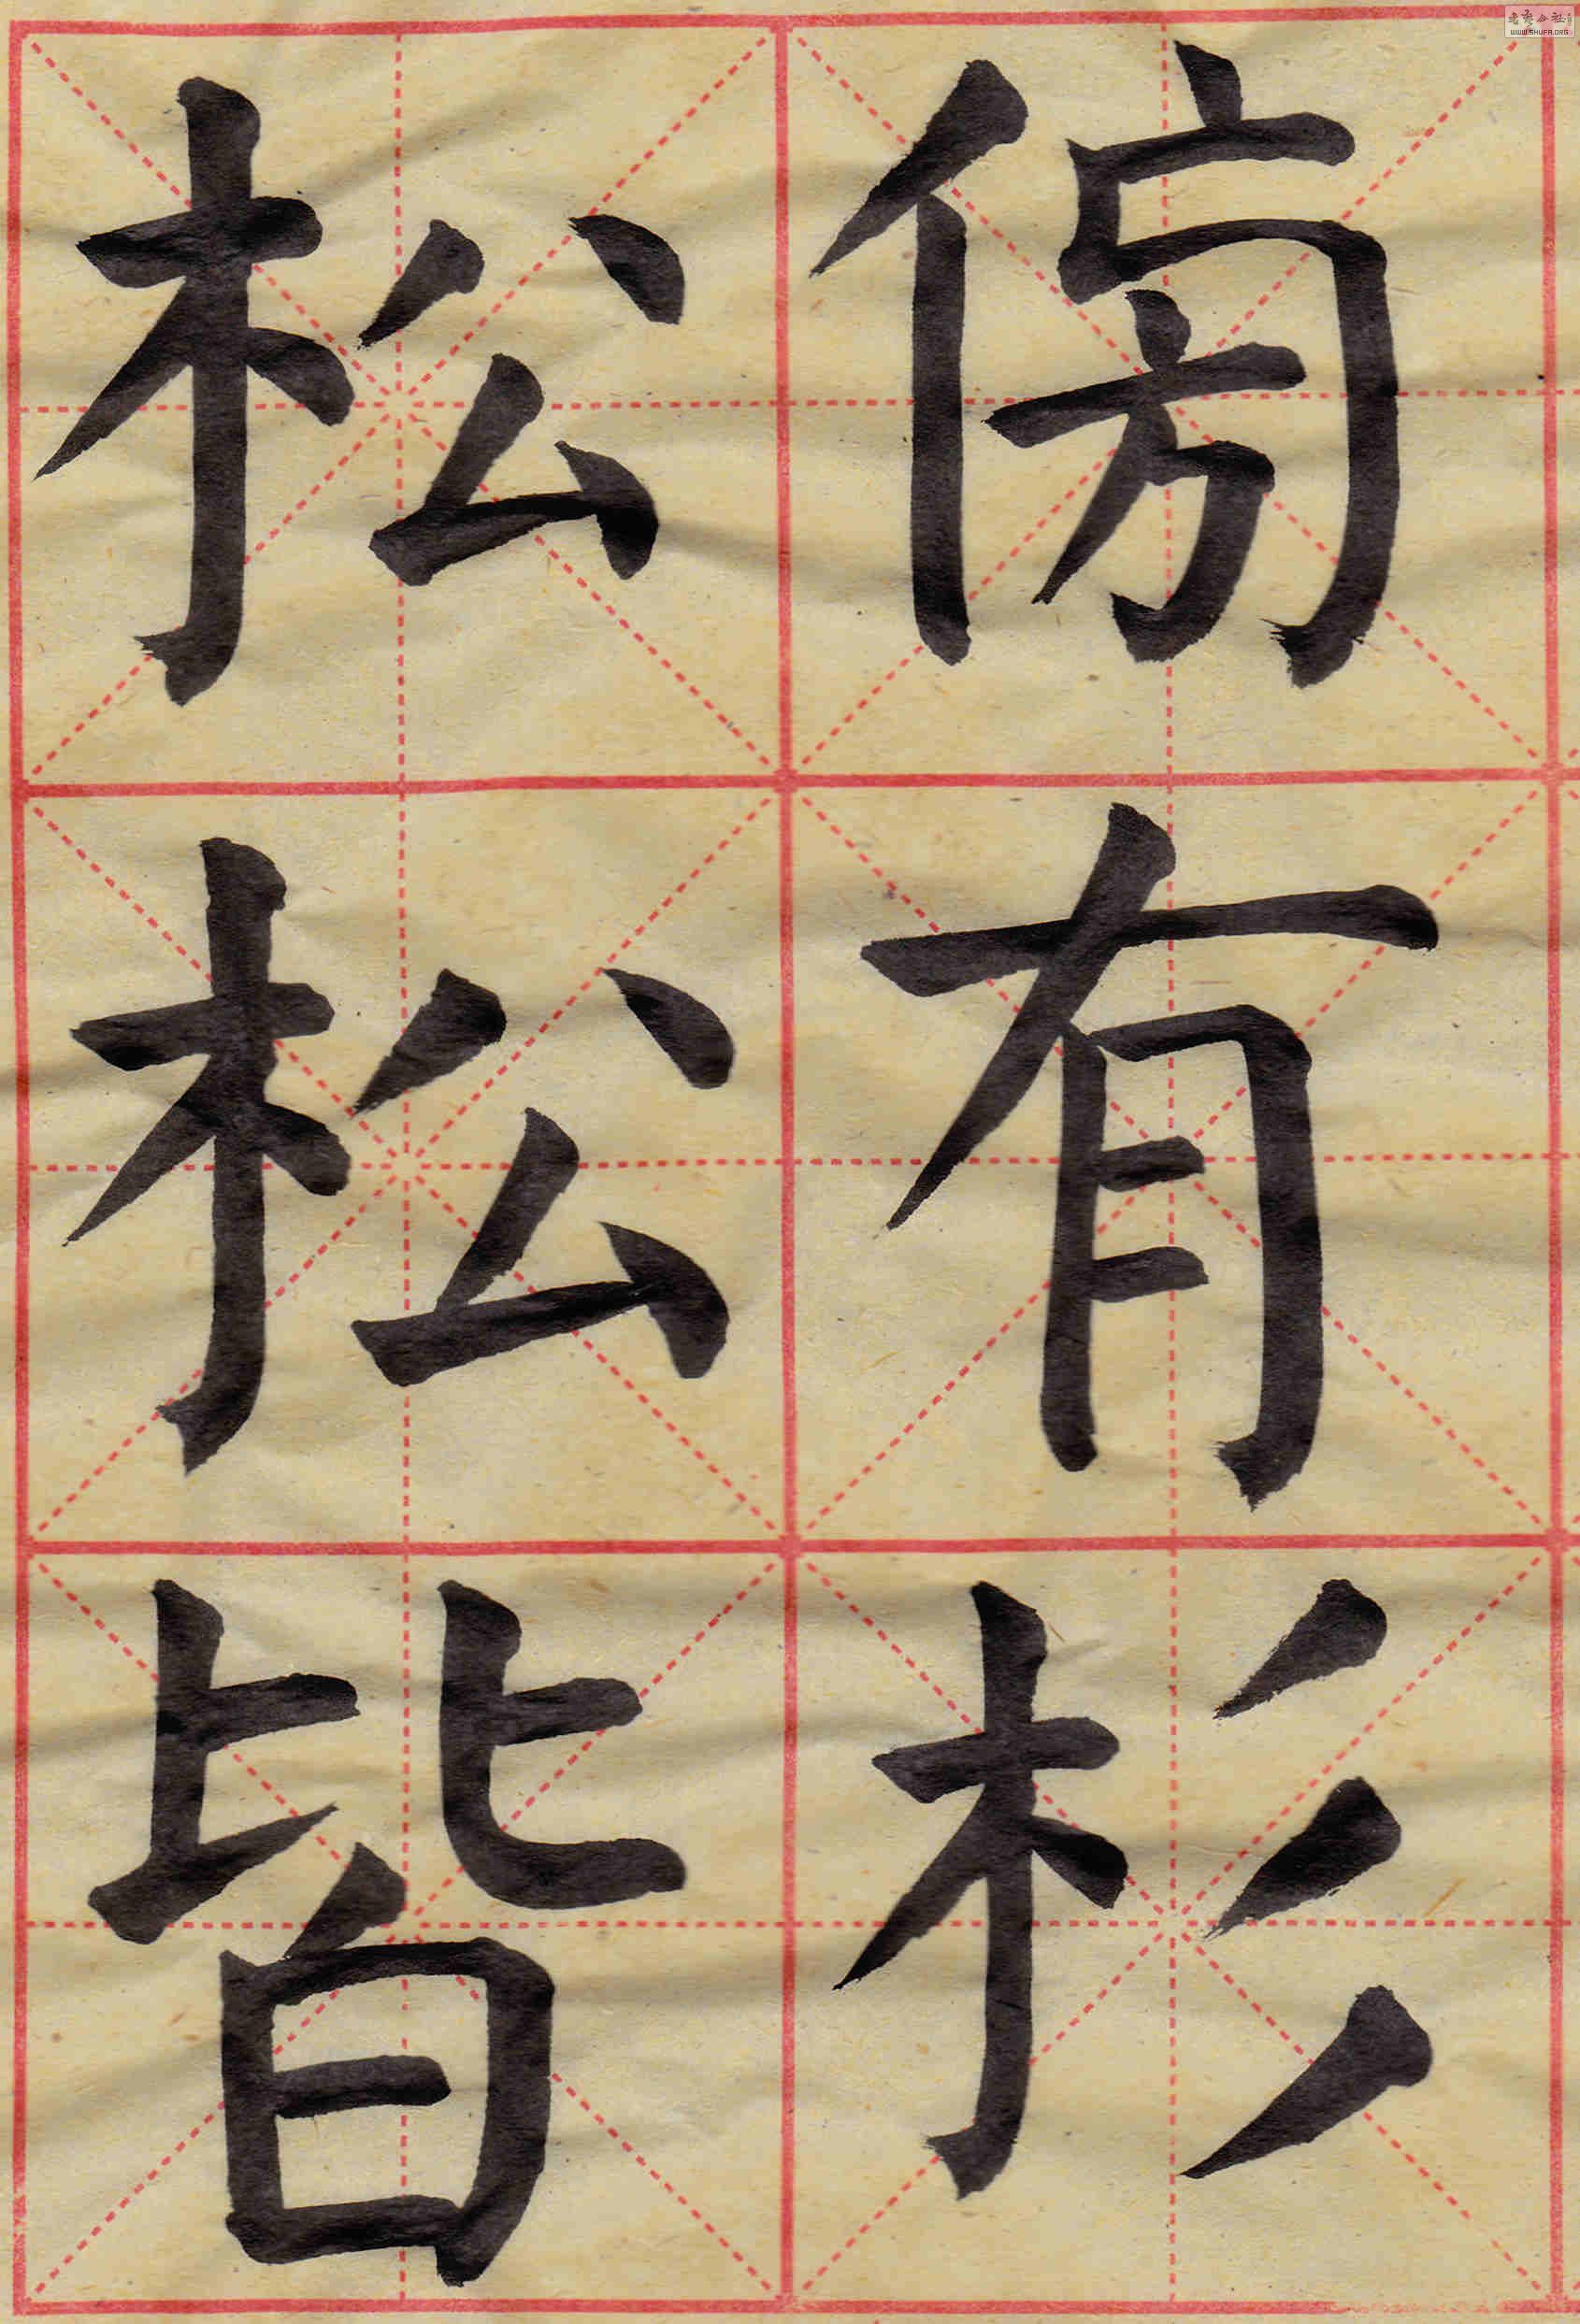 傍有杉
松松皆
WWW.SHUFA.ORG